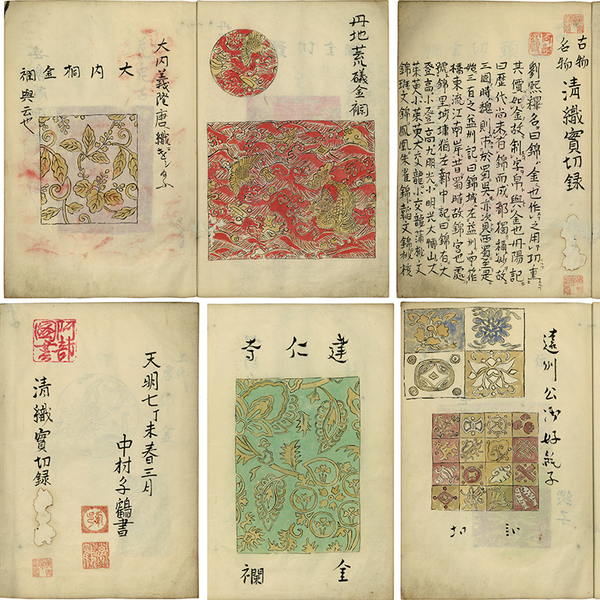 古物
名物
清織寳切録
劉熈釋名曰錦ハ金也作之用功重
其價如金故制字帛與金也丹陽記
曰歴代尚未有錦而成都獨稱妙故
三國時魏則市於蜀吴亦次貢西蜀至是
始三百之益州記曰錦城在益州南笮
橋東流江南岸昔蜀時故錦宮也處
號錦里城墉猶在鄴中記曰錦有大
登高小登高九明光小明光大博山大
茱萸小茱萸大交龍小交龍蒲桃文
錦斑文錦鳳凰朱雀錦韜文錦桃核
丹地荒礒金襴
大内義隆唐織
大内桐金
襴與云也
遠州公御好純子
切
建仁寺
金襴
天明七丁未春三月
中村子鶴書
清織寳切録
阿部